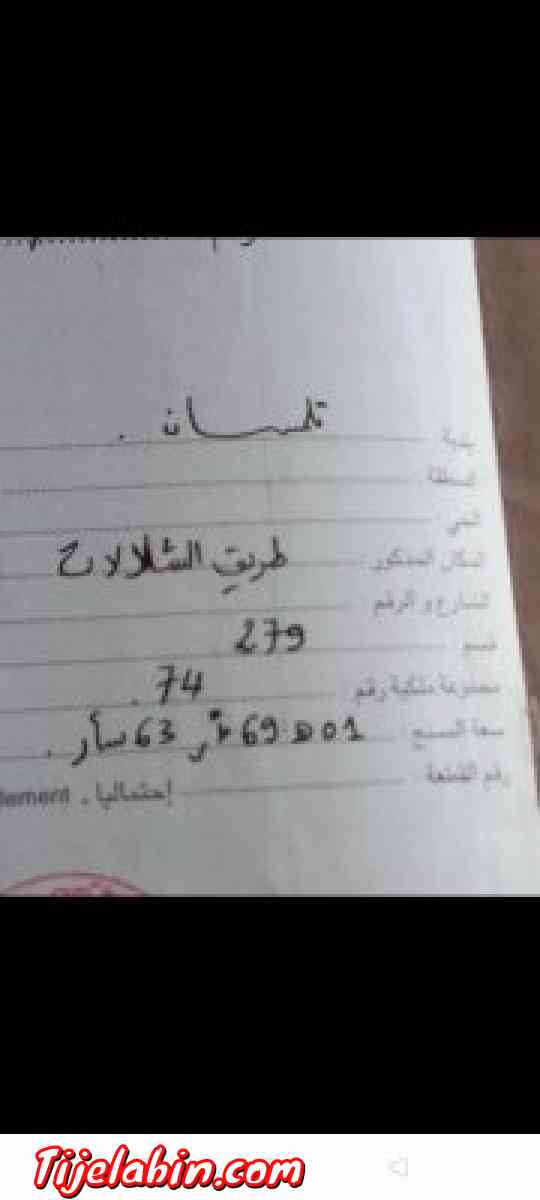 بلدية تلمسان .
المنطقة
الحي
المكان المذكور : طريق الشلالات
الشارع و الرقم :
قسم 279
مجموعة ملكية رقم : 74 .
سعة المسح : 01 ه 69 آر 63 سآر .
رقم القطعة :
إحتماليا . lement
Tijelabin.com